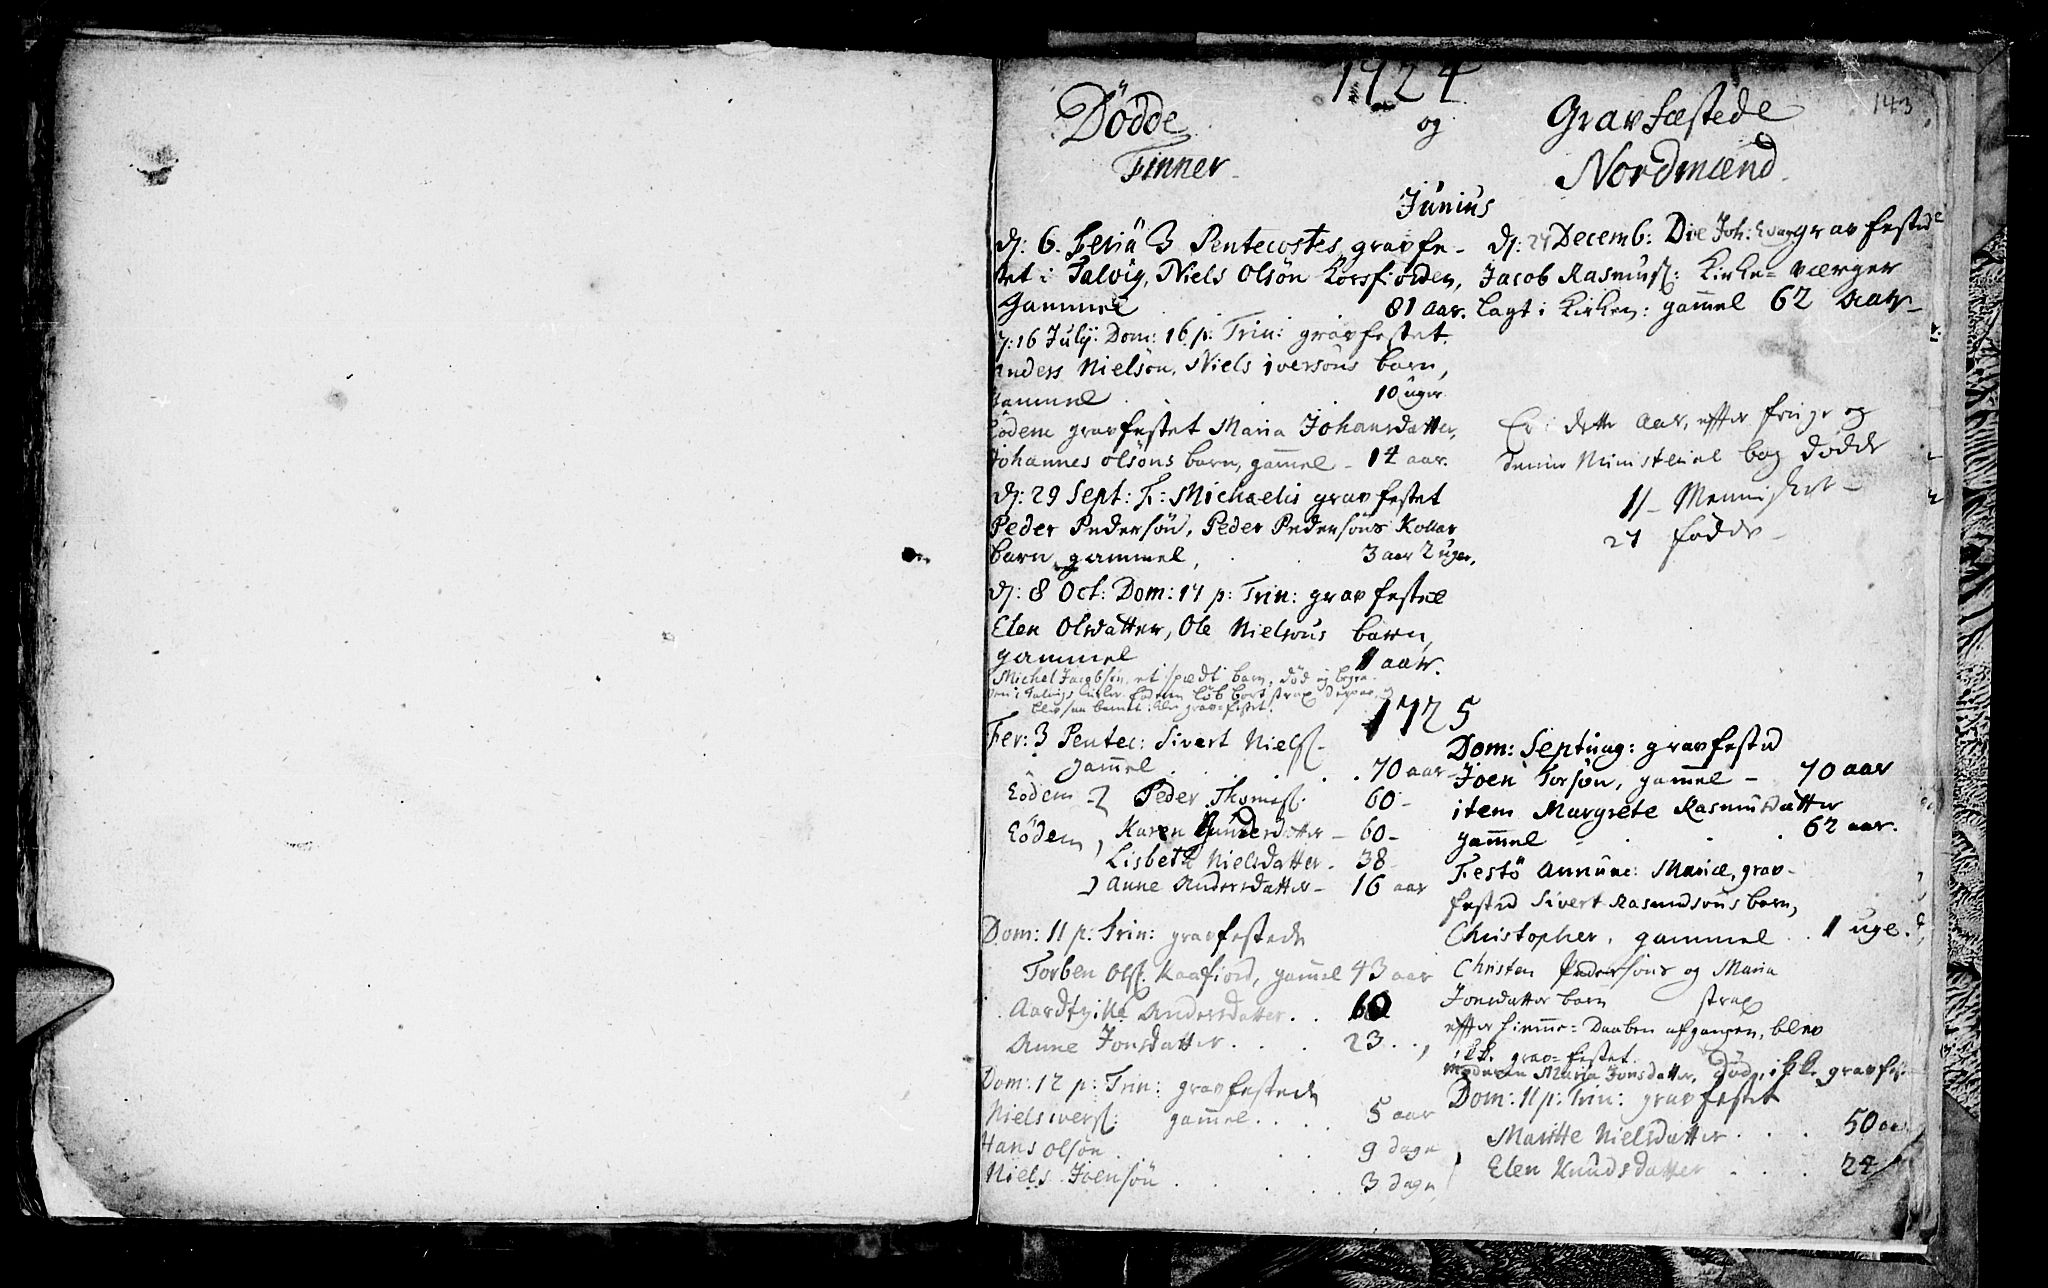 143
1724
Dödde og Gravfæstede
Finner Nordmænd
Junius
d: 6. Feriâ 3 Pentecostes gravfe-
stet i Talvig, Niels Olsön Korsfiorden,
Gammel 81 aar.
d: 16 July: Dom: 16 p: Trin: gravfestet
Anders Nielsön, Niels iversöns barn,
Gammel 10 uger.
Eodem gravfestet Maria Johansdatter,
Johannes olsöns barn, gamel - 14 aar.
d: 29 Sept: F: Michaelis gravfestet
Peder Pedersön, Peder Pedersöns
barn, gammel, 3 aar 2 uger.
d: 8 Oct: Dom: 17 p: Trin: gravfestet
Elen Olsdatter, Ole Nielsöns barn,
gammel 1 aar.
Michel Jacobsön, et spædt barn, död og begra-
d: 27 Decemb: Die Joh: Evang gravfestede
Jacob Rasmus: Kirke-værger
lagt i Kirken: gamel 62 aar
Er i dette aar, efter
denne Ministerial bog dödde
11 Mennisker
27 födde
1725
Fer: 3 Pentec: Sivert Niels:
gamel 70 aar
Eödem Peder Thomes: 60
Eödem, Karen Gundersdatter 60
Lisbeth Nielsdatter 38
Anne Andersdatter 16 aar
Dom: 11 p: Trin: gravfestede
Torben Ols: Kaafiord, gamel 43 aar
Andersdatter 60
Anne Jonsdatter 23
Dom: 12 p: Trin: gravfestede
Niels ivers: gamel 5 aar
Hans olsön 9 dage
Niels Joensön 3 dage
Dom: Septuag: gravfested
Joen Torsön, gamel - 70 aar
item Margrete Rasmusdatter
gamel 62 aar.
Festö Annunc: Mariæ, grav-
fested Sivert Rasmudsöns barn,
Christopher, gammel 1 uge.
Christen Pedersöns og Maria
Jonsdatter barn strax
efter hiemme-Daaben afgangen, blev
ikk. grav-festet.
Moderen Maria Jonsdatter, död, ikke gravfest
Dom: 11 p: Trin: gravfestet
Maritte Nielsdatter 50 aar
Elen Knudsdatter 24